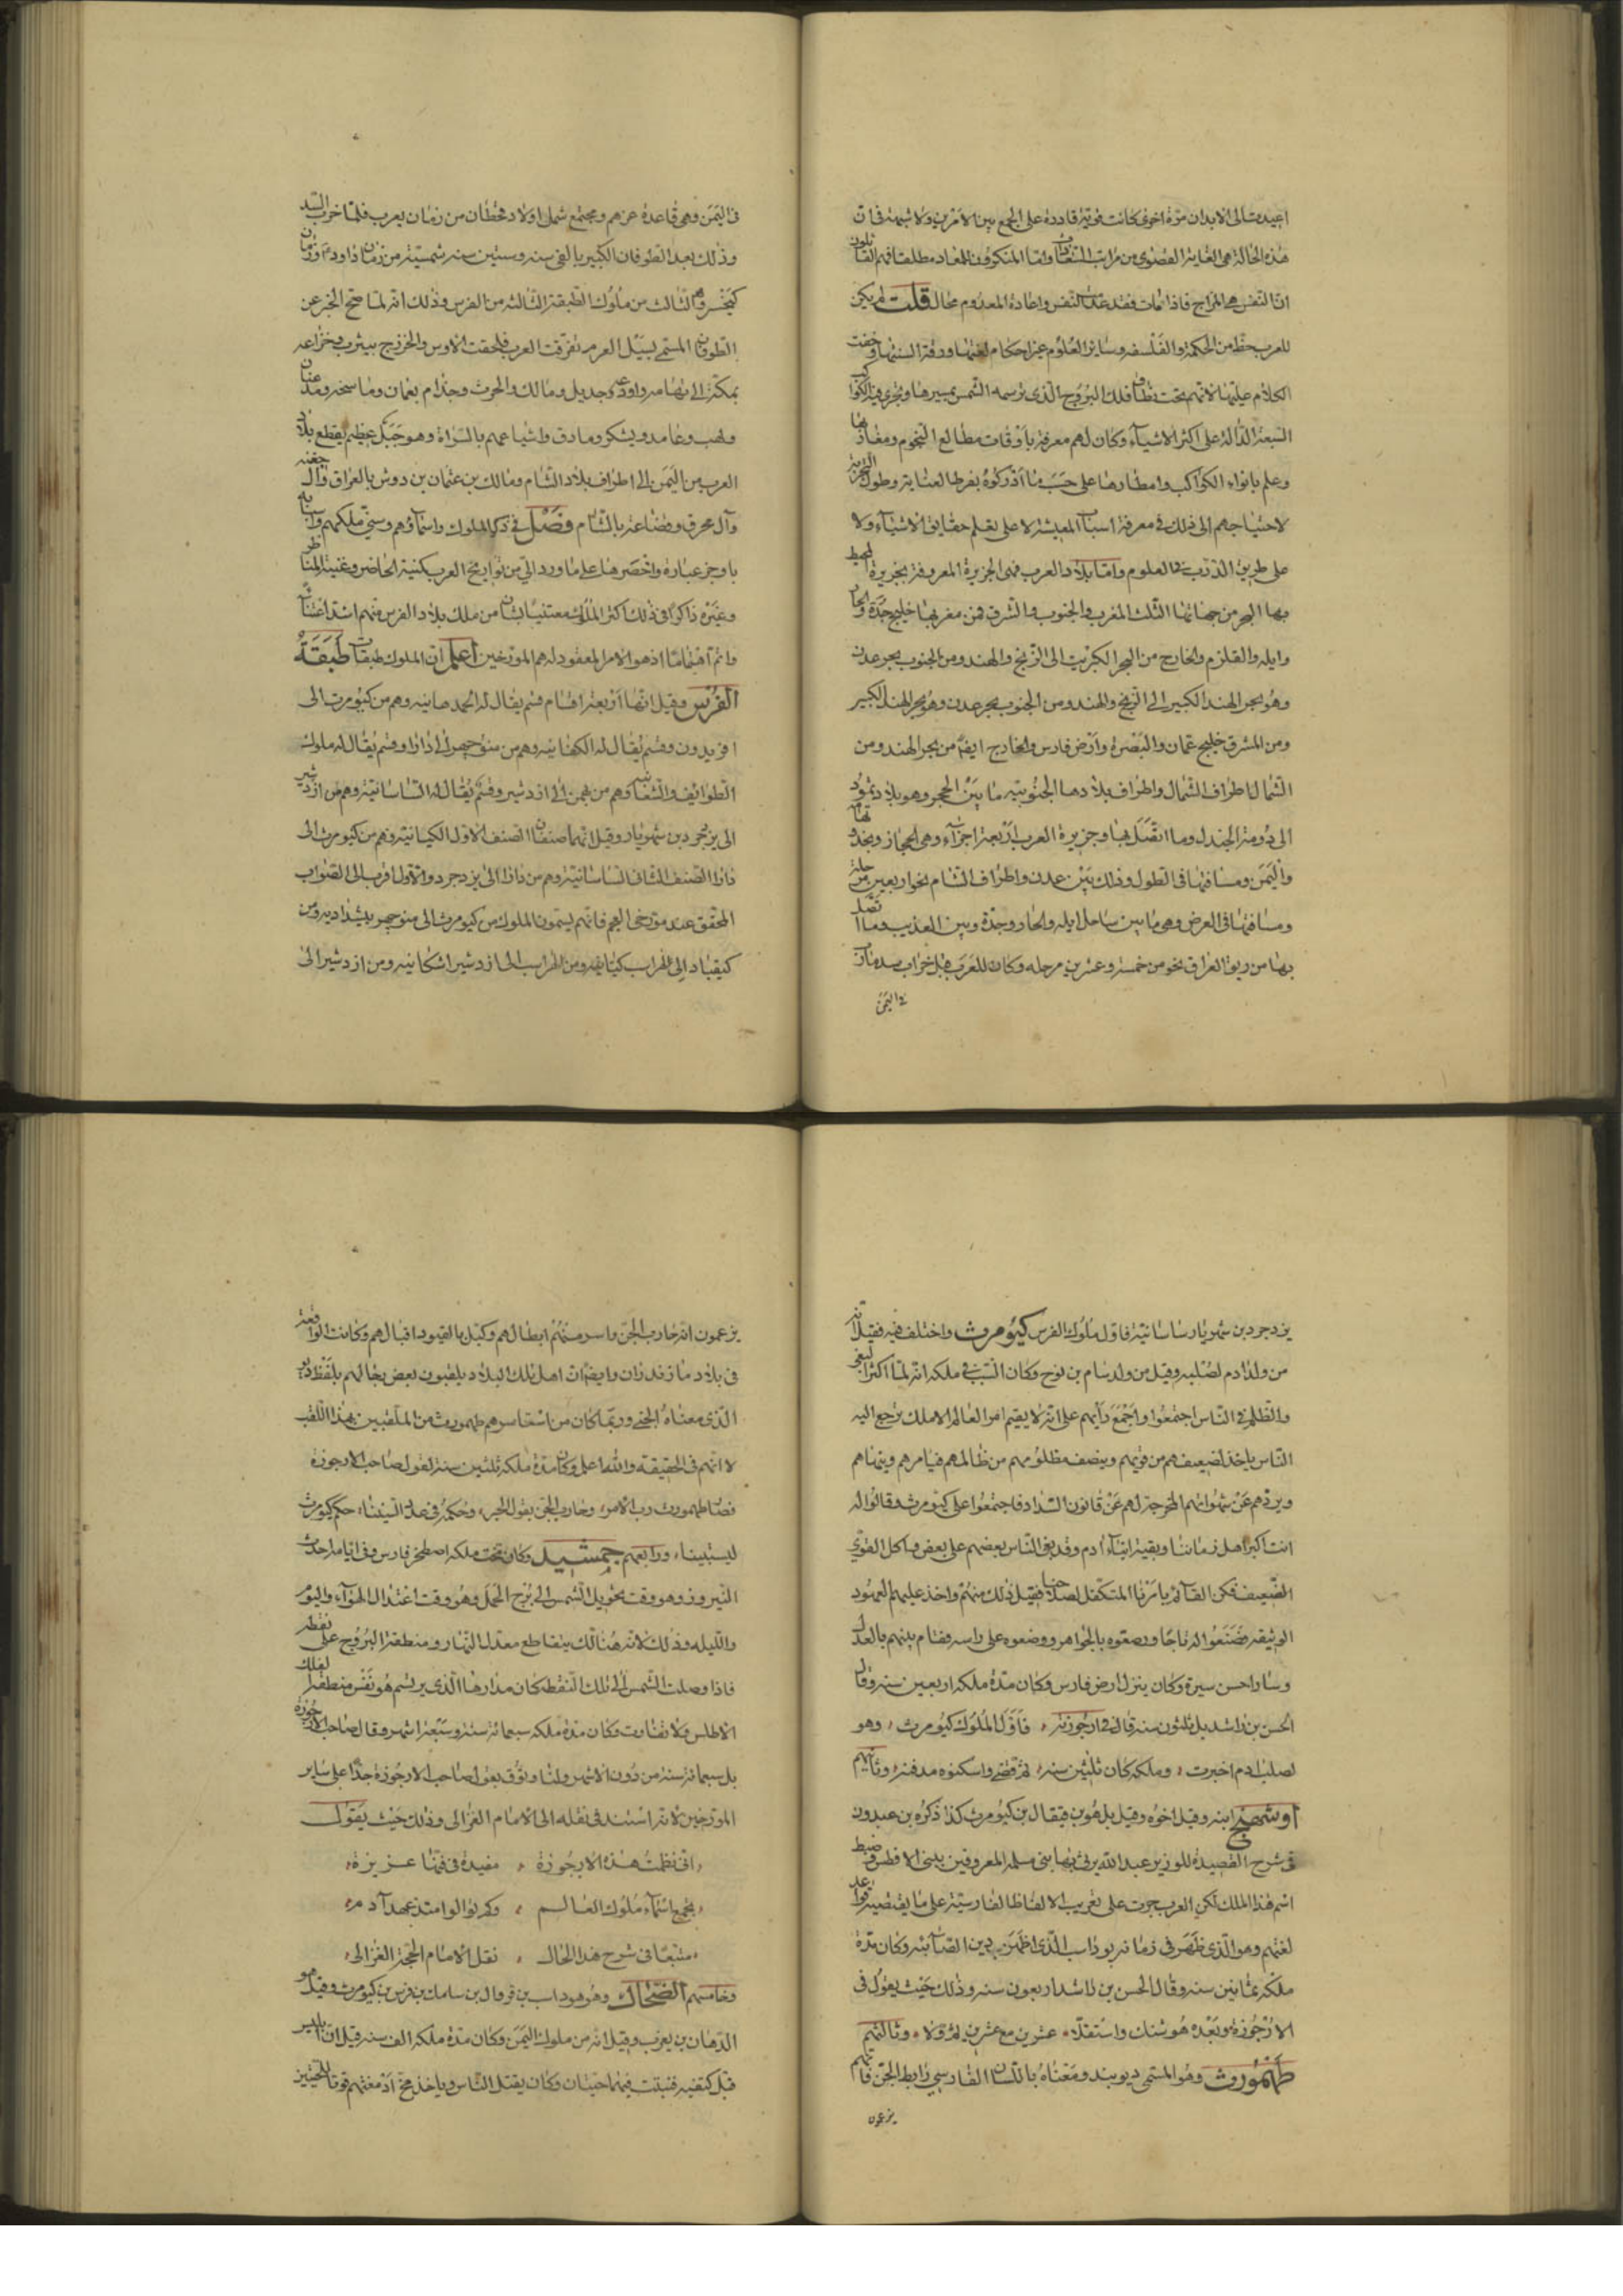 اعيدت الى الابدان مرّة اخرى كانت قوية قادرة على الجمع بين الامرين ولا شبهة فى ان
هذه الحالة هى الغاية القصوى من مراتب السعادات واما المنكرون للمعاد مطلقا فهم القائلون
انّ النفس هى المزاج فاذا مات فقد عدمت النفس واعادة المعدوم محال قلت لم يكن
للعرب حظ من الحكمة والفلسفه وساير العلوم غير احكام لغتها ودقة السنتها وخفت
الكلام عليها لانهم تحت نطاق فلك البروج الذى ترسمه الشمس بمسيرها وتجرى فيه الكواكب
السبعة الدالة على اكثر الاشيآء وكان لهم معرفة باوقات مطالع النجوم ومغاربها
وعلم بانواء الكواكب وامطارها على حسب ما ادركوه بفرط العناية وطول التجربة
لاحتياجهم الى ذلك فى معرفة اسباب المعيشة لا على تعلم حقايق الاشيآء ولا
على طريق التدرب فى العلوم واما بلاد العرب فهى الجزيرة المعروفة بجزيرة المحيط
بها البحر من جهاتها الثلث المغرب والجنوب والشرق فمن مغربها خليج جدّة والجار
وايله والقلزم والخارج من البحر الكبير الى الزنج والهند ومن الجنوب بحر عدن
وهو بحر الهند الكبير الى الزنج والهند ومن الجنوب بحر عدن وهو بحر الهند الكبير
ومن المشرق خليج عمان والبصرة وارض فارس والخارج ايضا من بحر الهند ومن
الشمال اطراف الشمال واطراف بلادها الجنوبية ما بين الحجر وهو بلاد ثمود
الى دومة الجندل وما اتصل بها وجزيرة العرب اربعة اجزآء وهى الحجاز ونجد وتهامة
واليمن ومسافتها فى الطول وذلك بين عدن واطراف الشام نحو اربعين مرحلة
ومسافتها فى العرض وهى ما بين ساحل ايله والجار وجدة وبين العذيب وما اتصل
بها من ريف العراق نحو من خمسة وعشرين مرحله وكان للعرب قبل خراب سد مأرب
فى اليمن
فى اليمن وهى قاعدة عزهم ومجتمع شمل اولاد قحطان من زمان يعرب فلما خرب السد
وذلك بعد الطوفان الكبير بالفى سنه وستين سنه شمسية من زمان داود ع م وزمان
كيخسرو الثالث من ملوك الطبقة الثالثه من الفرس وذلك انه لما صح الخبر عن
الطوفان المسمى بسيل العرم تفرقت العرب فلحقت الاوس والخزرج بيثرب وخزاعه
بمكة الى تهامه ووادعه وجديل ومالك والحرث وجذام بعمان وما سخه ومعد عنان
ولهب وغامد ويشكر ومادق واشياعهم بالسراة وهو جبل عظيم يقطع بلاد
العرب من اليمن الى اطراف بلاد الشام ومالك بن عثمان بن دوس بالعراق وآل جفنه
وآل محرق وقضاعة بالشام فصل فى ذكر الملوك واسماؤهم وسنى ملكهم وانسابه
باوجز عبارة واخصرها على ما ورد الى من تواريخ العرب كنية الحاضر وغنية المناظر
وغيره ذاكرا فى ذلك اكثر الملوك معتنيا بشان من ملك بلاد الفرس فهم اشد اعتنآ
واتم اهتماما اذ هو الامر المعقود لهم المورخين اعلم ان الملوك طبقات طبقة
الفرس وقيل انها اربعة اقسام قسم يقال له الحمدهانيه وهم من كيومرث الى
افريدون وقسم يقال له الكهانيه وهم من منوجهر الى دارا وقسم يقال له ملوك
الطوائف والاشغانيه وهم من بهمن الى ازدشير وقسم يقال له الساسانية وهم من ازدشير
الى يزدجرد بن شهريار وقيل انهما صنفان الصنف الاول الكيانية وهم من كيومرث الى
دارا الصنف الثانى الساسانية وهم من دارا الى يزدجرد والاول اقرب الى الصواب
المحقق عند مؤرخى العجم فانهم يسمون الملوك من كيومرث الى منوجهر بيشداديه ومن
كيقباد الى لهراسب كيانيه ومن لهراسب الى ازدشير اشكانيه ومن ازدشير الى
يزدجرد بن شهريار ساسانية فاول ملوك الفرس كيومرث واختلف فيه فقيل انه
من ولد ادم لصلبه وقيل من ولد سام بن نوح وكان السبب فى ملكه انه لما اكثر البغى
والظلم فى الناس اجتمعوا واجمع رأيهم على انه لا يقيم امر العالم الا ملك ترجع اليه
الناس ياخذ لضعيفهم من قويهم وينصف مظلومهم من ظالمهم فيامرهم وينهاهم
ويردهم عن شهواتهم المخرجة لهم عن قانون السداد فاجتمعوا على كيومرث وقالوا له
انت اكبر اهل زماننا وبقية ابينآء ادم وقد بغى الناس بعضهم على بعض واكل القوىّ
الضعيف فكن القآئم بامرنا المتكفل لصلاحنا فقبل ذلك منهم واخذ عليهم العهود
الوثيقه فصنعوا له تاجا ورصعوه بالجواهر ووضعوه على راسه فقام بينهم بالعدل
وسار احسن سيرة وكان ينزل ارض فارس وكان مدة ملكه اربعين سنه وقال
الحسن بن راشد بل ثلثون سنه قال فى ارجوزته ، فاول الملوك كيومرث ، وهو
لصلب ادم اخبرت ، وملكه كان ثلثين سنه ، ثم قضى واسكنوه مدفنه ، وثانيهم
اوشهنج ابنه وقيل اخوه وقيل بل هو بن فيقال بن كيومرث كذا ذكره بن عبدون
فى شرح القصيدة للوزير عبد الله يرثى بها بنى مسلمه المعروفين ببنى الافطس وضبط
اسم هذا الملك لكن العرب جرت على تغريب الالفاظ الفارسية على ما يقتضيه قواعد
لغتهم وهو الذى ظهر فى زمانه بوداسب الذى اظهر دين الصابئه وكان مدة
ملكه ثمانين سنه وقال الحسن بن راشد اربعون سنه وذلك حيث يقول فى
الارجوزة وبعده هوشنك واستقلا ، عشرين مع عشرين ثم ولا ، وثالثهم
طهمورث وهو المسمى ديوبند ومعناه باللسان الفارسي رابط الجن فانهم
يزعمون
يزعمون انه حارب الجن واسر منهم ابطالهم وكبل بالقيود اقيالهم وكانت الواقعة
فى بلاد مازندران وايضا ان اهل تلك البلاد يلقبون بعض رجالهم بلفظ ديو
الذى معناه الجنى وربما كان من اسرهم طهمورث من الملقبين بهذا اللقب
لا انهم فى الحقيقه والله اعلم وكان مدة ملكه ثلثين سنة لقول صاحب الارجوزة
فصار طهمورث رب الامر ، وحارب الجن بقول الجبر ، وحكمه فى عدد السنينا ، حكم كيومرث
ليستبينا ، ورابعهم جمشيد وكان تخت ملكه اصطخر فارس وفى ايامه احدث
النيروز وهو وقت تحويل الشمس الى برج الحمل وهو وقت اعتدال الهوآء واليوم
والليله وذلك لانه هنالك يتقاطع معدل النهار ومنطقة البروج على نقطه
فاذا وصلت الشمس الى تلك النقطه كان مدارها الذى يرسم هو نفس منطقه الفلك
الاطلس ولا تفاوت وكان مدة ملكه سبعمائة سنة وسبعة اشهر وقال صاحب الارجوزة
بل سبعمائة سنة من دون الاشهر ولنا وثوق بقول صاحب الارجوزة جدا على ساير
المورخين لانه استند فى نقله الى الامام الغزالى وذلك حيث يقول
، انى نظمت هذه الارجوزة ، مفيدة فى فنها عزيزة ،
، بجمع اسمآء ملوك العالم ، وكم تولوا منذ عهد آدم ،
، متبعا فى شرح هذا الحال ، نقل الامام الحجة الغزالى ،
وخامسهم الضحاك وهو هوداسب بن قروال بن سامك بن فرس بن كيومرث وقيل هو
الدهان بن يعرب وقيل انه من ملوك اليمن وكان مدة ملكه الف سنه قيل ان ابليس
قبل كتفيه فنبتت فيهما حيتان وكان يقتل الناس وياخذ مخ ادمغتهم قوتا للحيتين